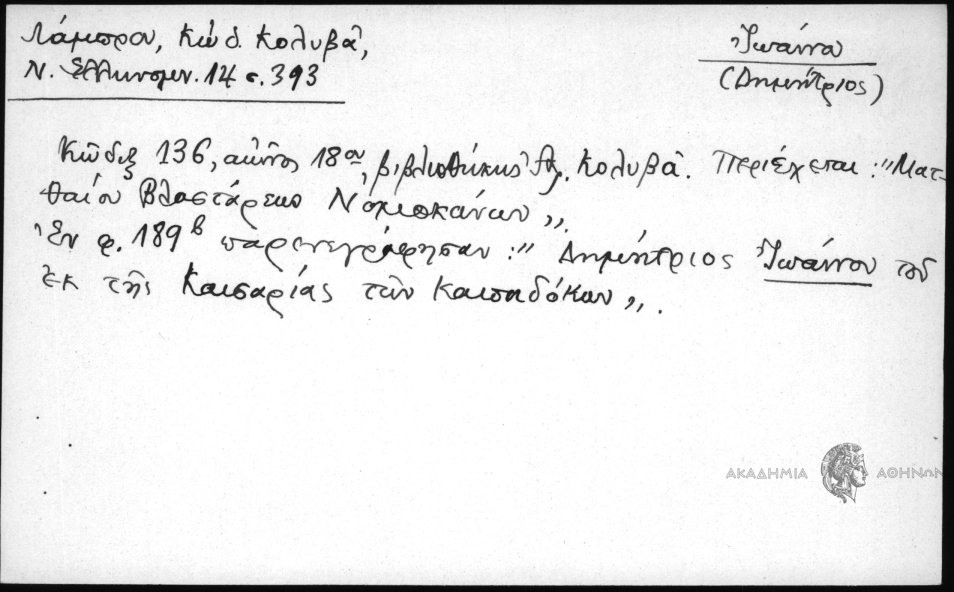 Λάμπρου, Κώδ. Κολυβᾶ,
Ν. Ἑλληνομν. 14 σ. 393
Ἰωάννου
(Δημήτριος)
Κῶδιξ 136, αἰῶνος 18ου, βιβλιοθήκης Ἀλ. Κολυβᾶ. Περιέχεται: "Ματ-
θαίου Βλαστάρεως Νομοκάνων".
Ἐν φ. 189β παρενεγράφησαν: "Δημήτριος Ἰωάννου τοῦ
ἐκ τῆς Καισαρίας τῶν Καππαδόκων".
ΑΚΑΔΗΜΙΑ ΑΘΗΝΩΝ